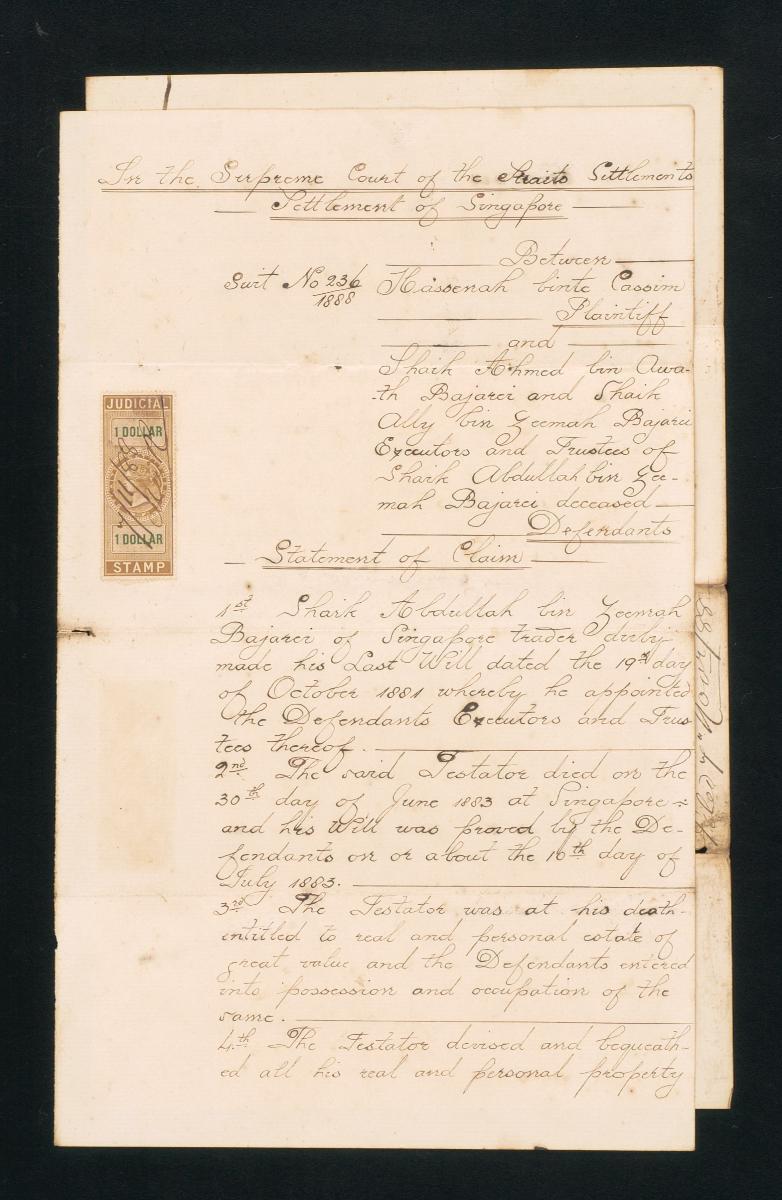 In the Supreme Court of the Straits Settlements
Settlement of Singapore
Between
Suit No 236
1888
Hassenah binte Cassim
Plaintiff
and
Shaik Ahmed bin Awa-
-th Bajarei and Shaik
Ally bin Zeemah Bajarei
Executors and Trustees of
Shaik Abdullah bin Zee-
mah Bajarei deceased
Defendants
JUDICIAL
1 DOLLAR
1 DOLLAR
STAMP
Statement of Claim
1st Shaik Abdullah bin Zeemah
Bajarei of Singapore trader duly
made his Last Will dated the 19th day
of October 1881 whereby he appointed
the Defendants Executors and Trus
tees thereof.
2nd The said Testator died on the
30th day of June 1883 at Singapore
and his Will was proved by the De-
fendants on or about the 16th day of
July 1883.
3rd The Testator was at his death
entitled to real and personal estate of
great value and the Defendants entered
into possession and occupation of the
same.
4th The Testator devised and bequeath-
ed all his real and personal property